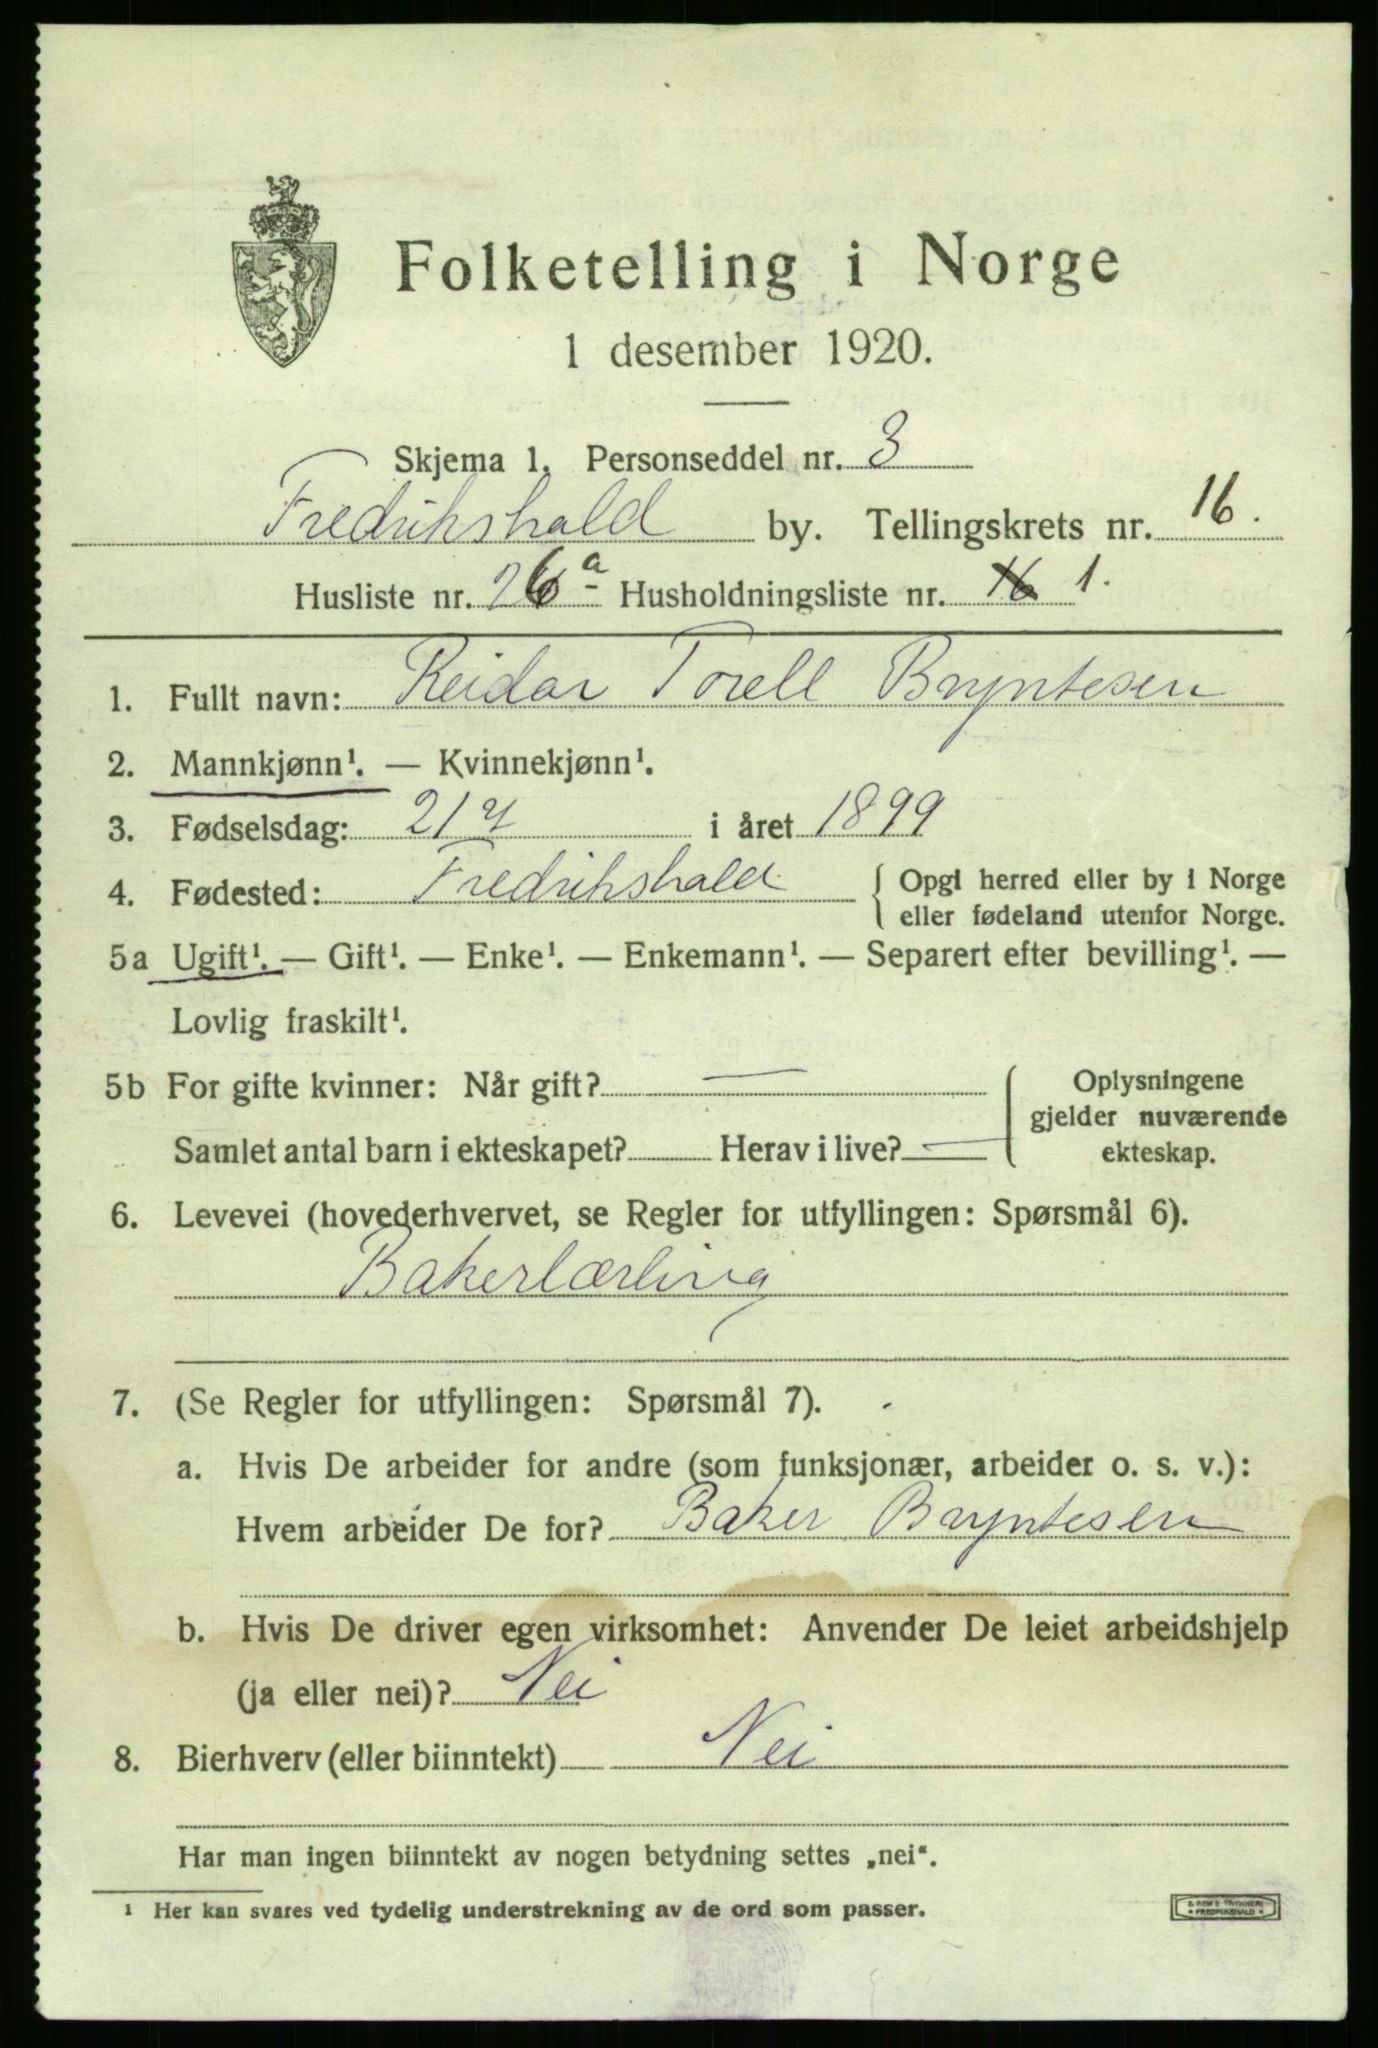 Folketelling i Norge
1 desember 1920.
Skjema 1. Personseddel nr. 3
Fredrikshald by. Tellingskrets nr. 16.
Husliste nr. 26 a Husholdningsliste nr. 16 1.
1. Fullt navn: Reidar Torell Bryntesen
2. Mannkjønn¹. — Kvinnekjønn¹.
3. Fødselsdag: 21/7 i året 1899
4. Fødested: Fredrikshald { Opgi herred eller by i Norge
eller fødeland utenfor Norge.
5a Ugift¹. — Gift¹. — Enke¹. — Enkemann¹. — Separert efter bevilling¹. —
Lovlig fraskilt¹.
5b For gifte kvinner: Når gift? — { Oplysningene
gjelder nuværende
Samlet antal barn i ekteskapet? Herav i live? — ekteskap.
6. Levevei (hovederhvervet, se Regler for utfyllingen: Spørsmål 6).
Bakerlærling
7. (Se Regler for utfyllingen: Spørsmål 7).
a. Hvis De arbeider for andre (som funksjonær, arbeider o. s. v.):
Hvem arbeider De for? Baker Bryntesen
b. Hvis De driver egen virksomhet: Anvender De leiet arbeidshjelp
(ja eller nei)? Nei
8. Bierhverv (eller biinntekt) Nei
Har man ingen biinntekt av nogen betydning settes „nei“.
¹ Her kan svares ved tydelig understrekning av de ord som passer.
TRYKKERI
FREDRIKSHALD